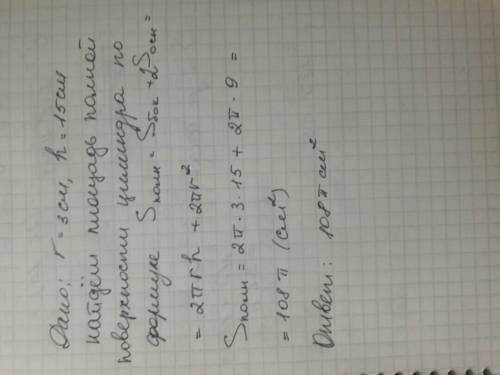 Дано: r = 3 см, h = 15 см
Найдём площадь полной
поверхности цилиндра по
формуле Sполн = Sбок + 2Sосн =
= 2πrh + 2πr²
Sполн = 2π · 3 · 15 + 2π · 9 =
= 108π (см²)
Ответ: 108π см²